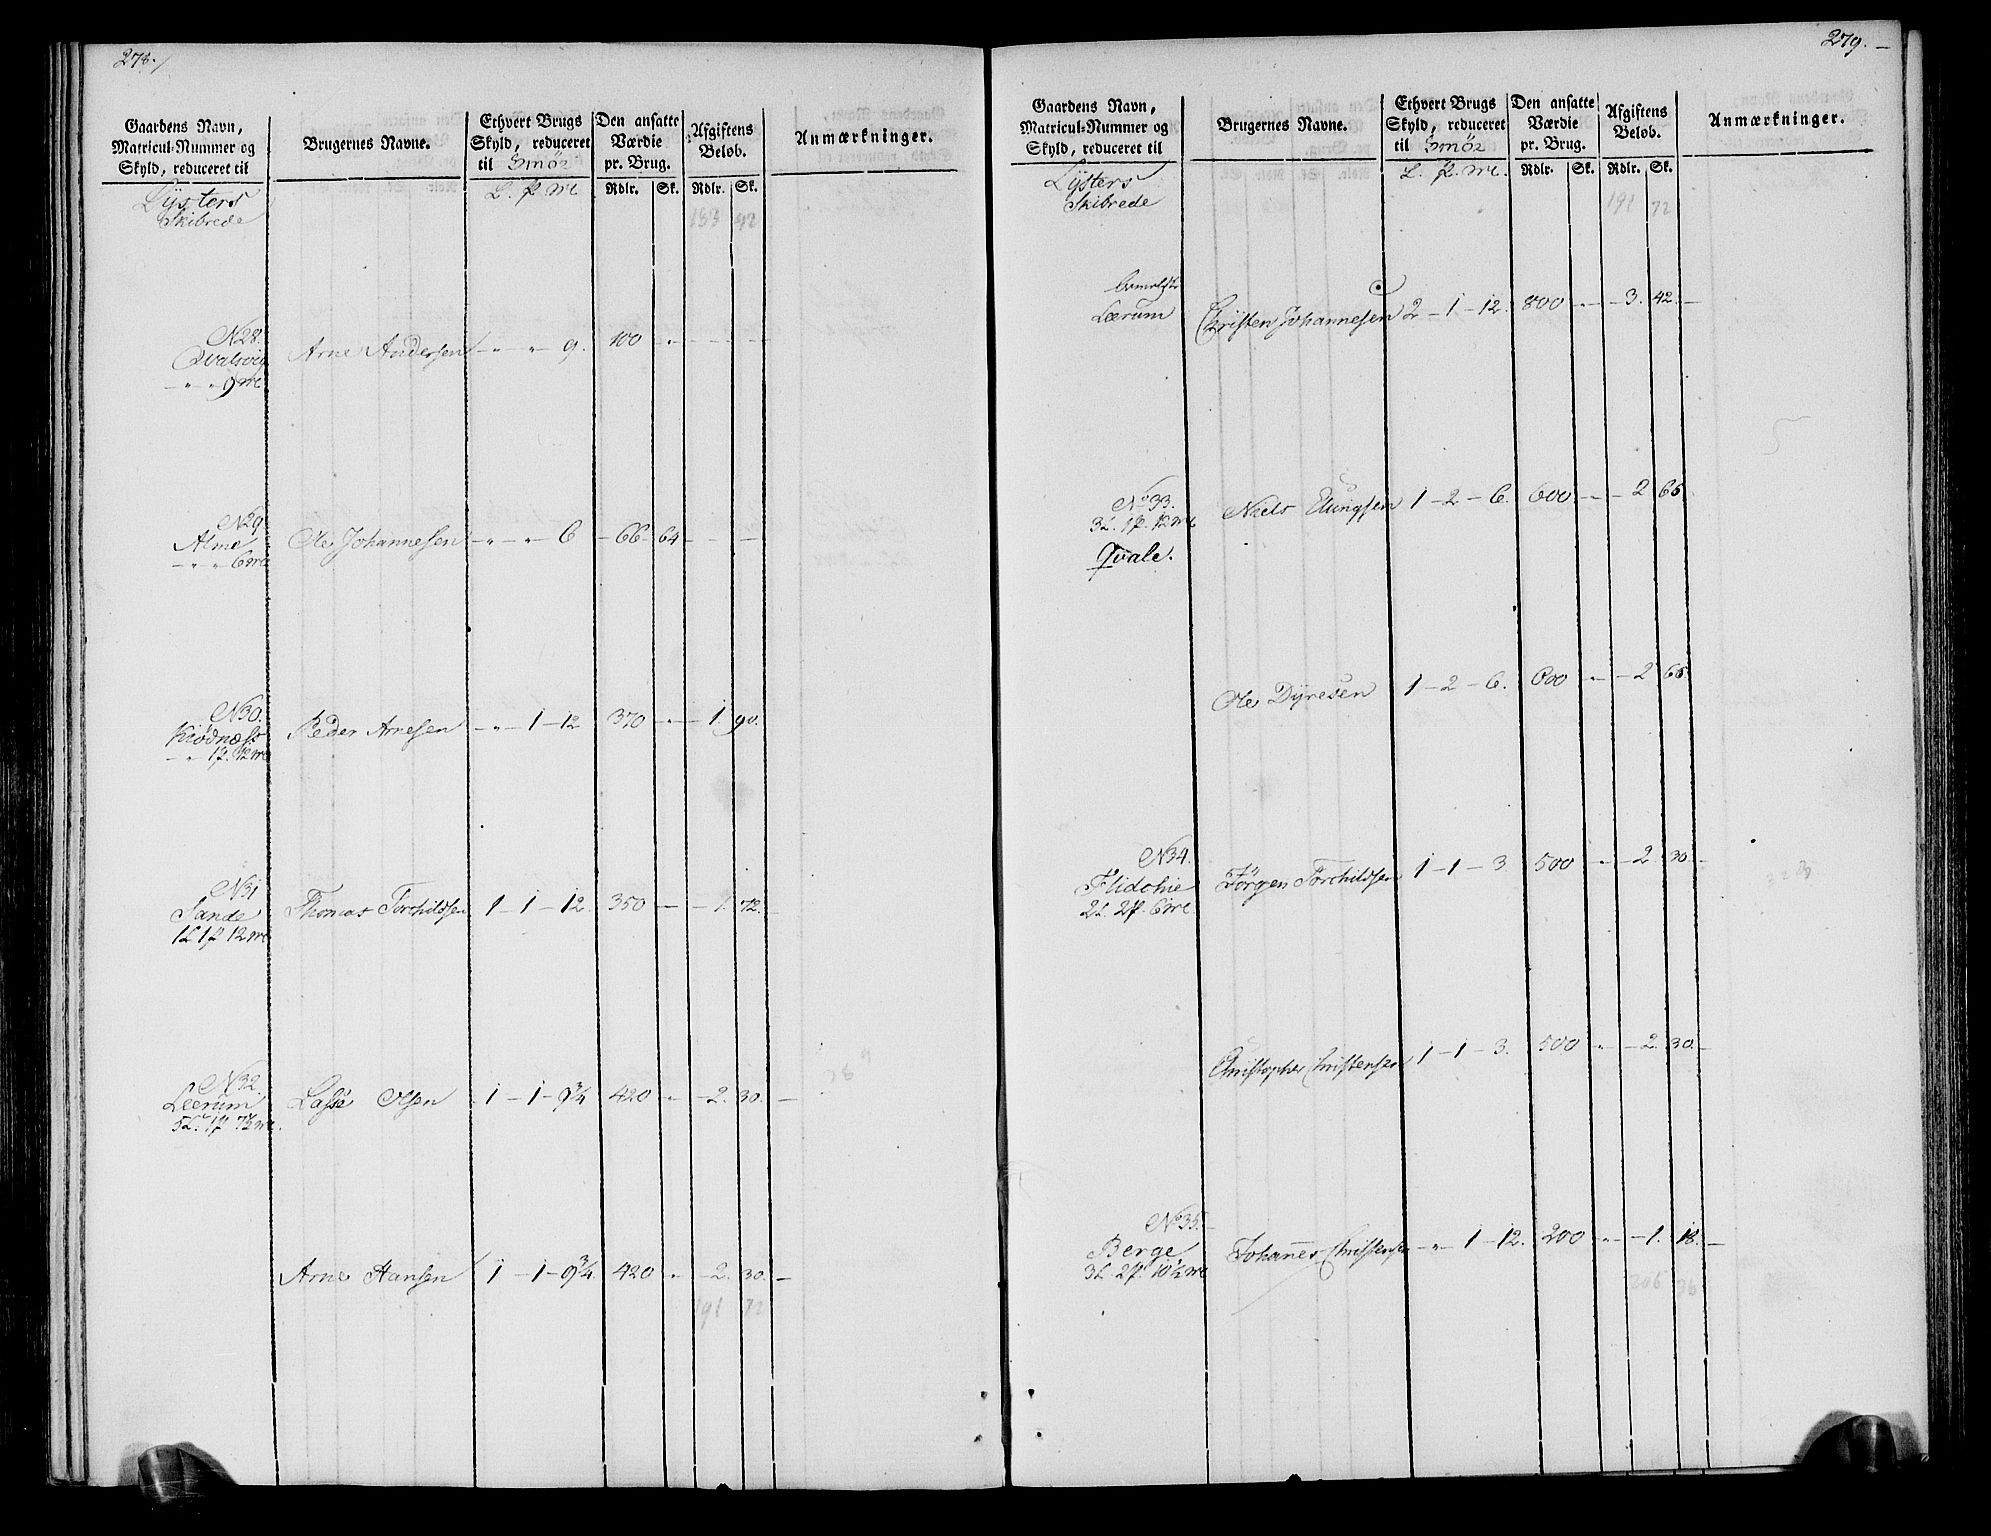 278.
Gaardens Navn,
Matricul-Nummer og
Skyld, reduceret til
Brugernes Navne.
Ethvert Brugs
Skyld, reduceret
til Smör
Den ansatte
Værdie
pr. Brug.
Afgiftens
Beløb.
Anmærkninger.
L. p. mk
Rdlr. Sk. Rdlr. Sk.
Lÿsters
Skibrede
183 42
N 28.
Qvalsvig
- " - " 9 mk
Arne Andersen - " - " 9. 100 " - - - -
N 29
Alme
- " - " 6 mk
Ole Johannesen - " - " 6 - 66 - 64 - - -
N 30.
Kiødnæss
- " 1 p. 12 mk
Peder Arnesen - " - 1 - 12 370 " - 1. 90.
N 31
Sande
1 L 1 p 12 mk
Thomas Torchildsen 1 - 1 - 12. 350 - - 1. 72. -
N 32
Leerum
5 L. 1 p 7½ mk.
Lasse Olsen 1 - 1 - 9¾ 420 " - 2. 30. -
Arne Hansen 1 - 1 - 9¾ 420 " - 2. 30. -
191 72
279. -
Gaardens Navn,
Matricul-Nummer og
Skyld, reduceret til
Brugernes Navne.
Ethvert Brugs
Skyld, reduceret
til Smör
Den ansatte
Værdie
pr. Brug.
Afgiftens
Beløb.
Anmærkninger.
L. p. mk.
Rdlr. Sk. Rdlr. Sk.
Lÿsters
Skibrede
191 72
Lærum
Christen Johannesen 2 - 1 - 12. 800 " - 3. 42. -
No 33.
3 L. 1 p. 12 mk
Qvale.
Niels 1 - 2 - 6. 600 " - 2 66
Ole Dÿresen 1 - 2 - 6. 600 " - 2 66
N 34.
2 L. 2 p. 6 mk
Jörgen Torchildsen 1 - 1 - 3 500 " - 2 30. -
Christopher Christensen 1 - 1 - 3. 500 " - 2. 30. -
No 35.
Berge
3 L. 2 p. 10½ mk
Johannes Christensen - " - 1 - 12. 200 " - 1. 18. -
206 36